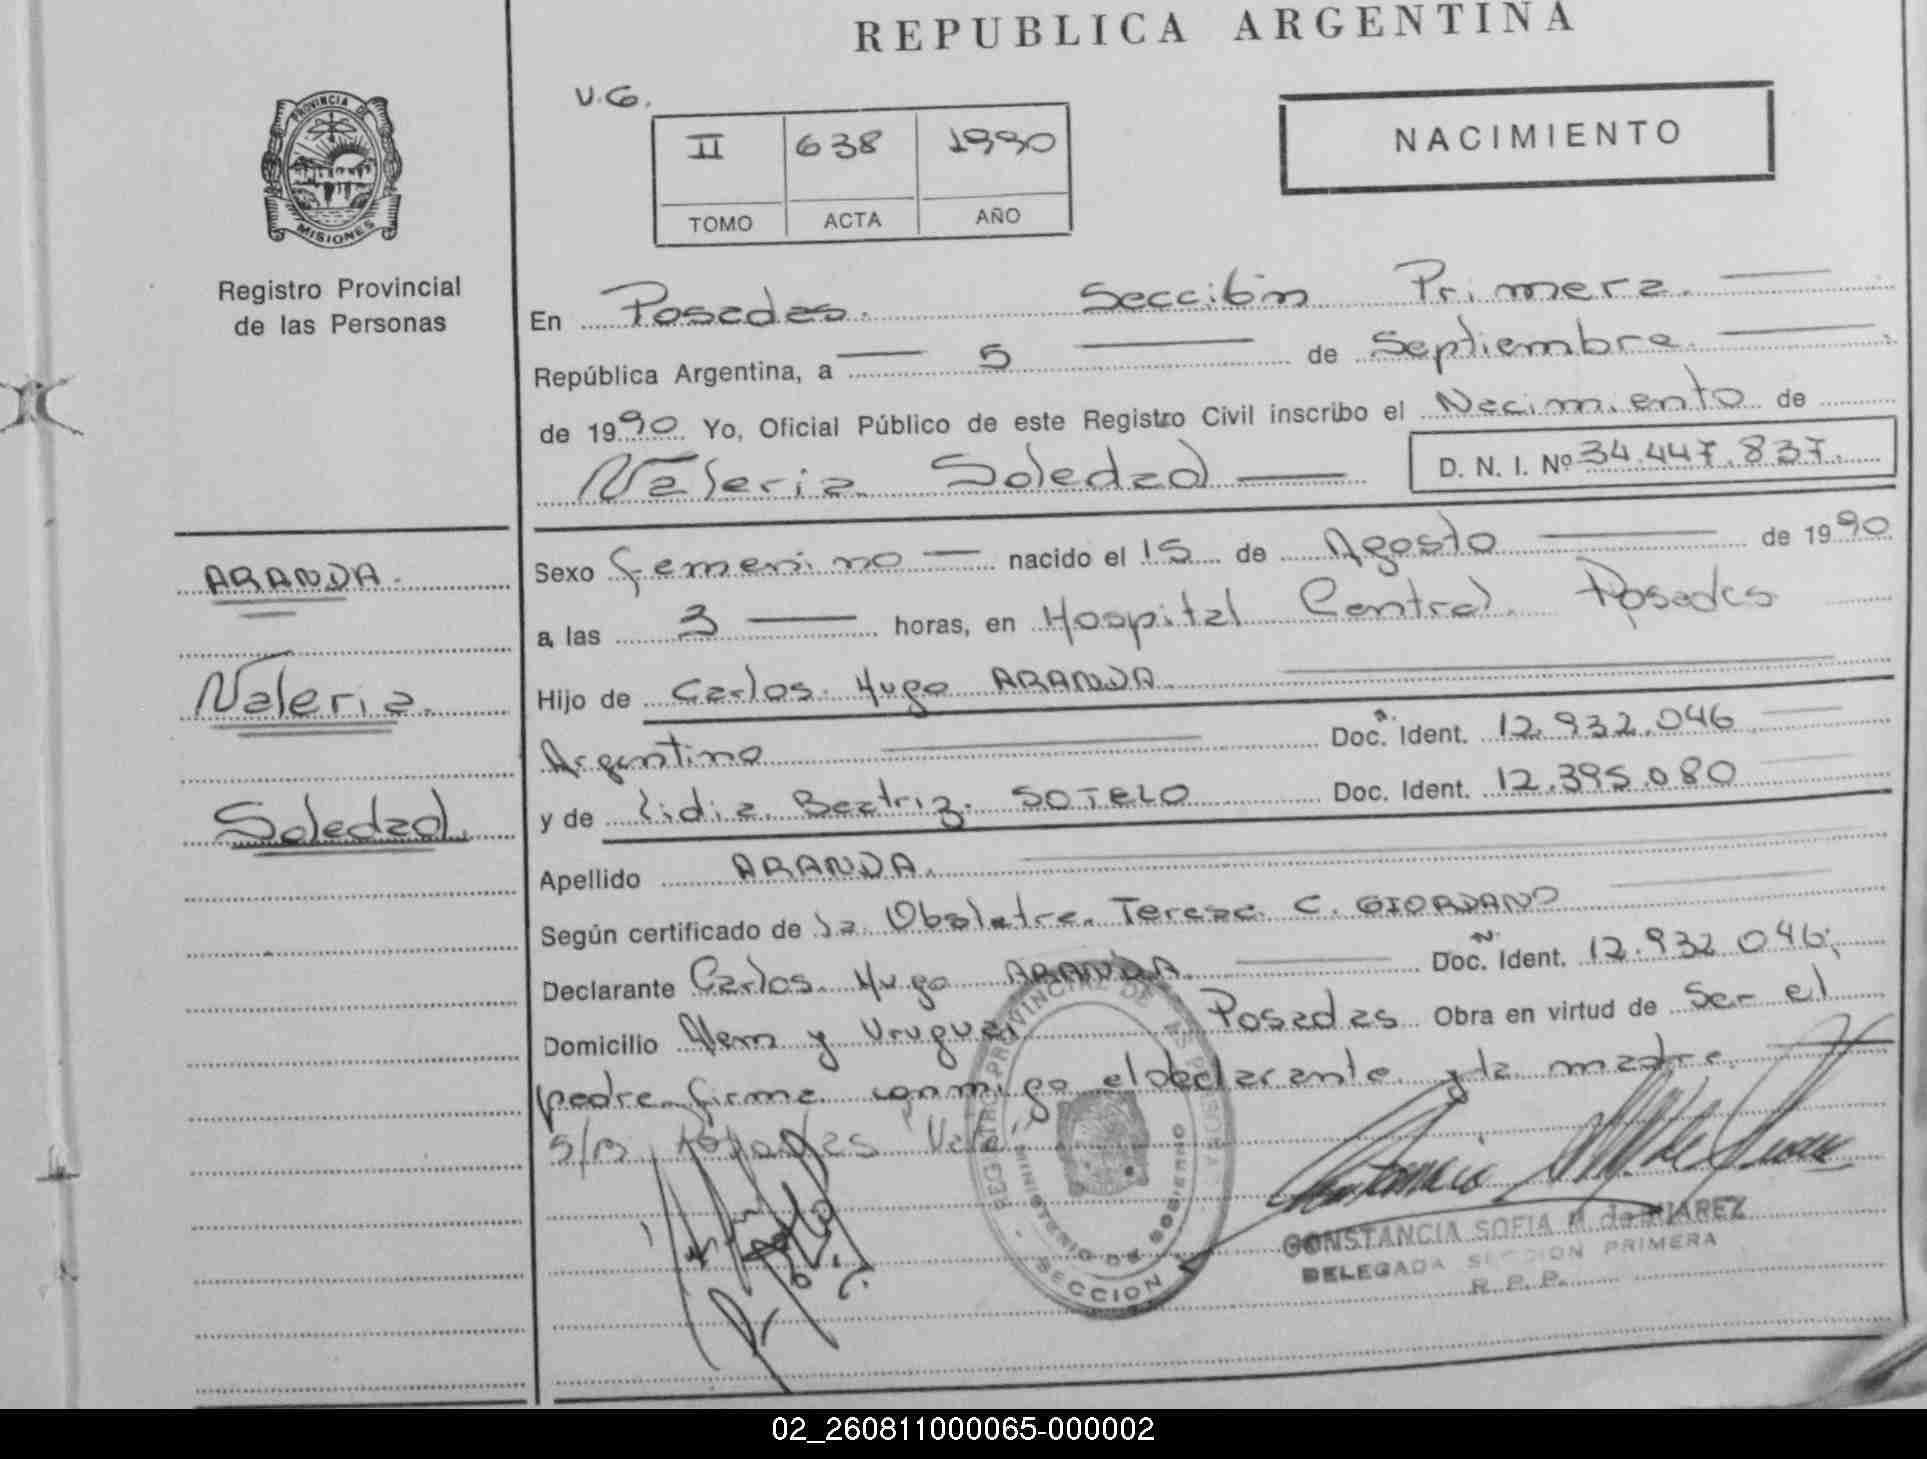 REPUBLICA ARGENTINA
V.G.
NACIMIENTO
II 638 1990
TOMO ACTA AÑO
PROVINCIA DE
MISIONES
Registro Provincial
de las Personas
En Posadas. Sección Primera.
República Argentina, a 5 de Septiembre.
de 1990 Yo, Oficial Público de este Registro Civil inscribo el Nacimiento de
Valeria Soledad D. N. I. Nº 34.447.837.
ARANDA.
Valeria.
Soledad.
Sexo femenino nacido el 15 de Agosto de 1990
a las 3 horas, en Hospital Central. Posadas
Hijo de Carlos Hugo ARANDA
Argentino Doc. Ident. 12.932.046
y de Lidia Beatriz SOTELO Doc. Ident. 12.395.080
Apellido ARANDA.
Según certificado de la Obstetra Teresa C. GIORDANO
Declarante Carlos Hugo ARANDA Doc. Ident. 12.932.046;
Domicilio Alem y Uruguai Posadas Obra en virtud de ser el
padre firma conmigo el declarante y la madre.
S/B "Vale"
REG PROVINCIAL DE LAS PERSONAS
MINISTERIO DE GOBIERNO
SECCION
CONSTANCIA SOFIA M. de SUAREZ
DELEGADA SECCION PRIMERA
R. P. P.
02_260811000065-000002